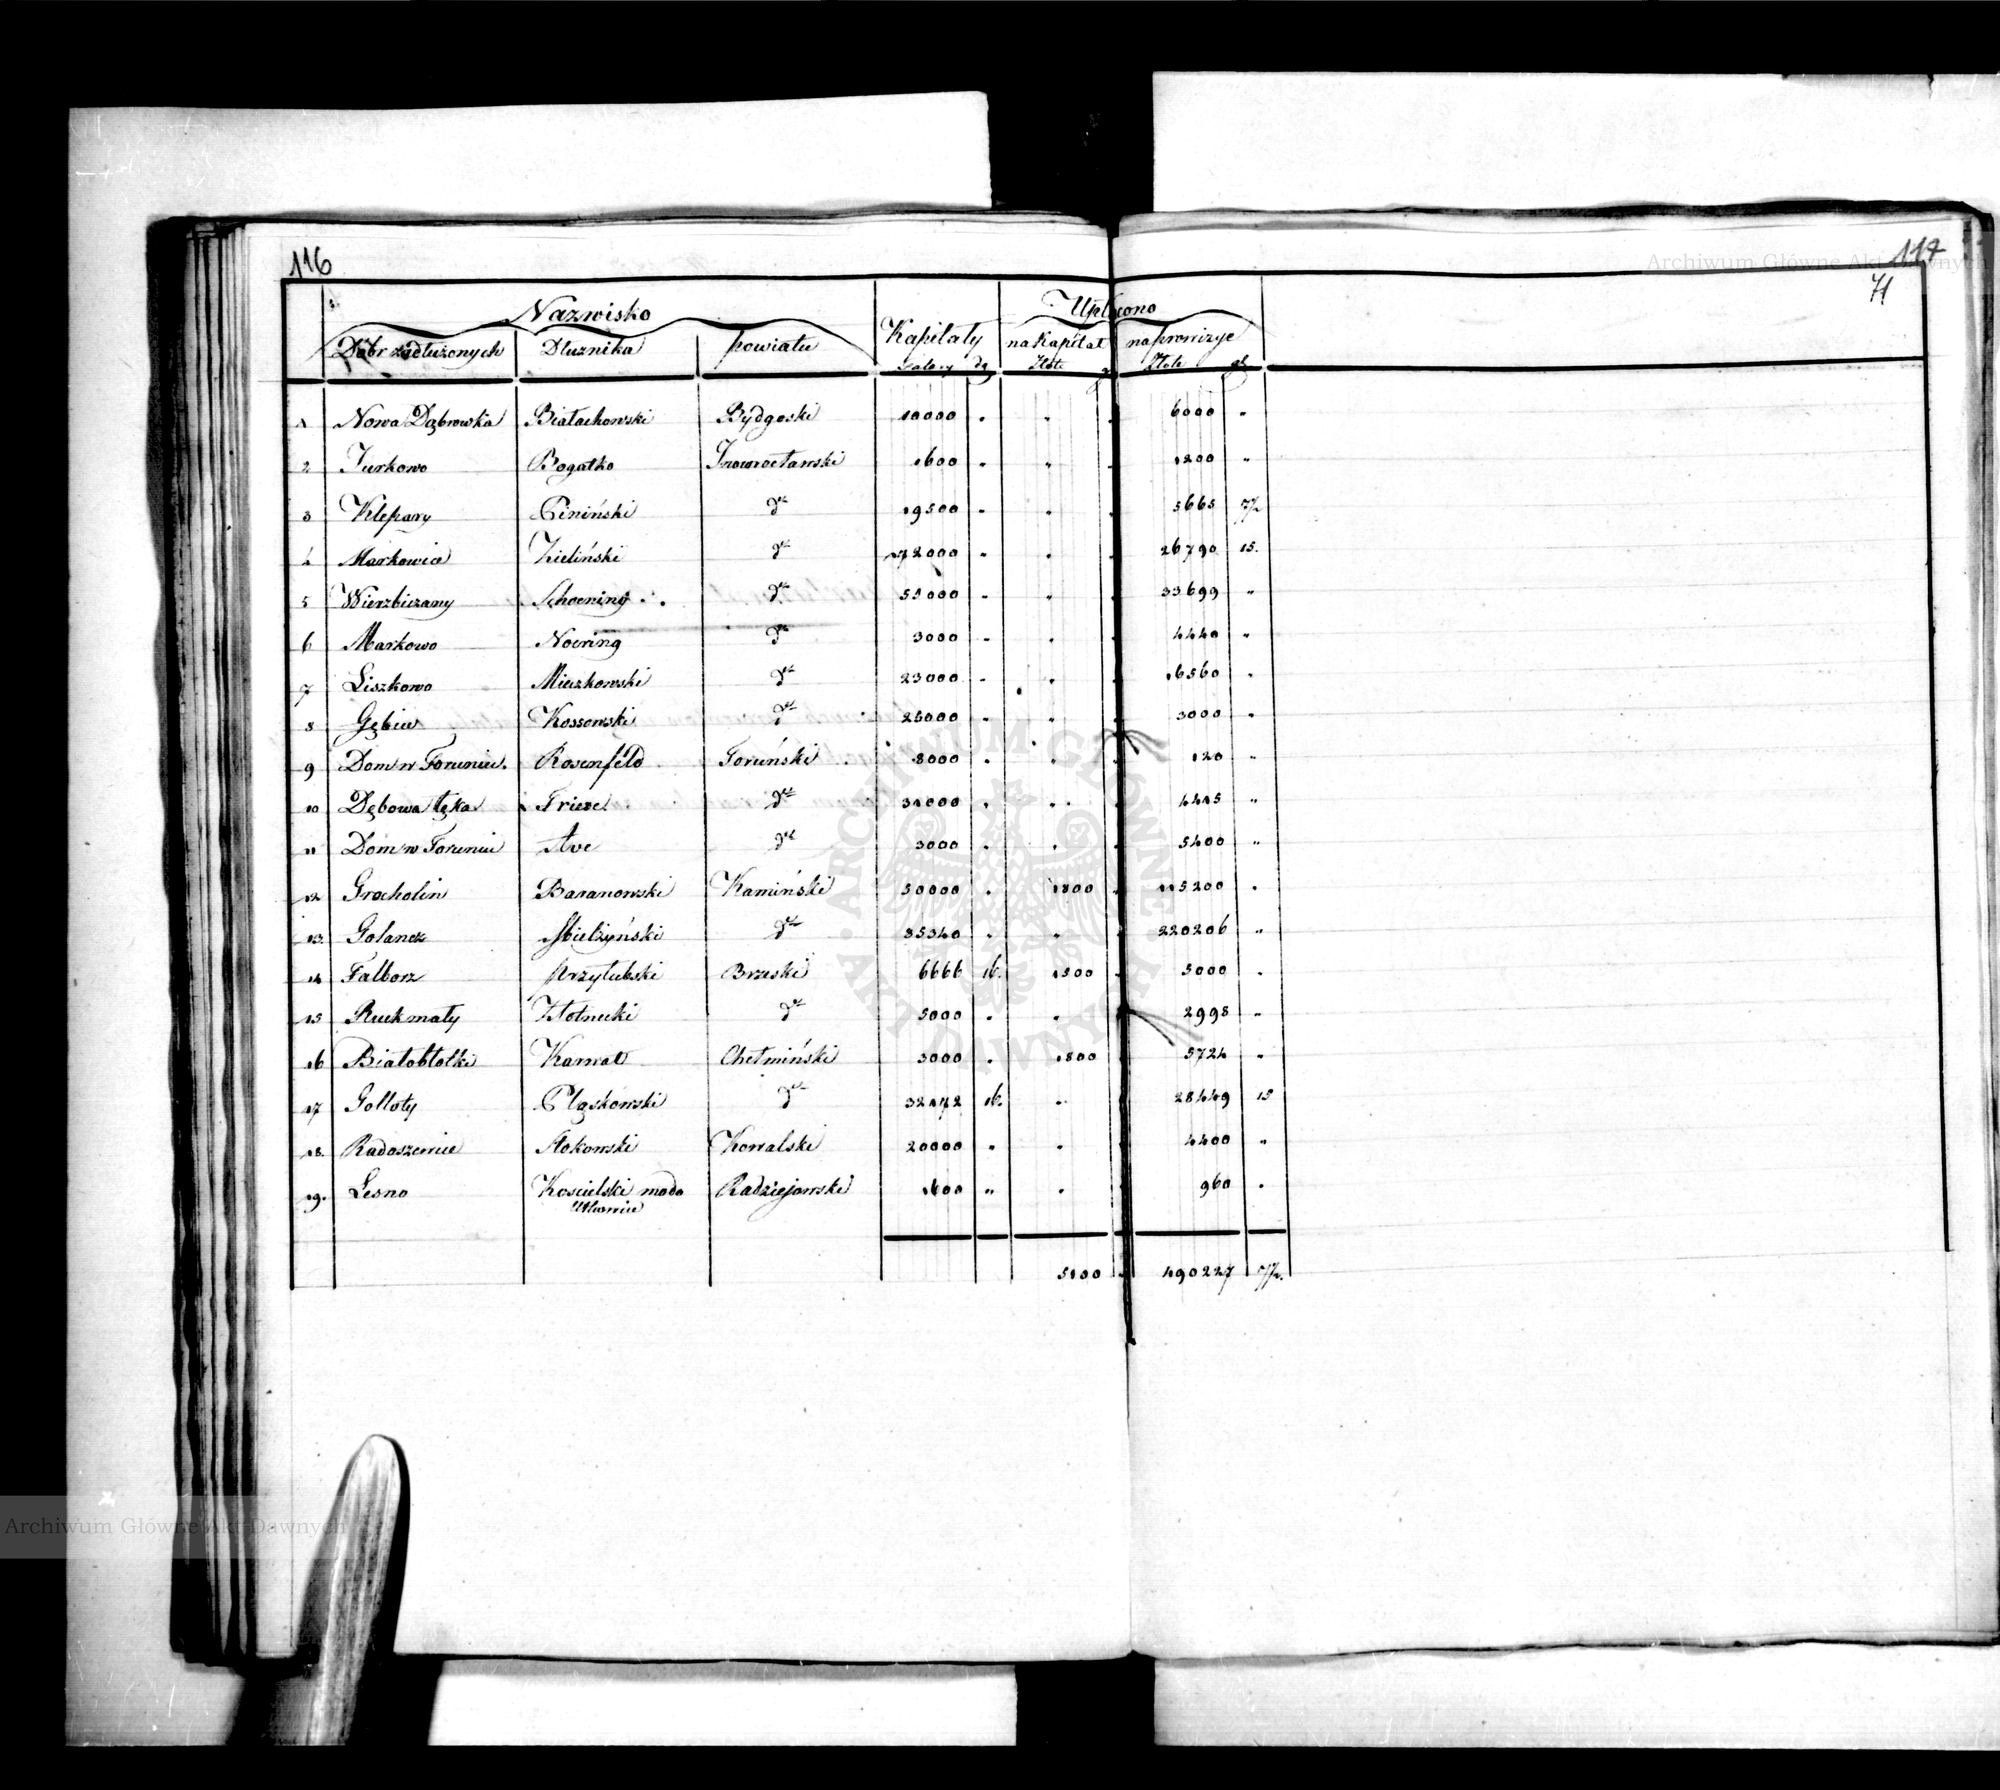 116
117
71
Nazwisko
Kapitały
Upłacono
Dóbr zadłużonych Dłuznika powiatu
na Kapitał na prowizye
Talary dg Złote Złote gr
1 Nowa Dąbrowka Białachowski Bydgoski 10000 " " 6000 "
2 Turkowo Bogatko Inowrocławski 1600 " " 1200 "
3 Klepary Geniński dto 19500 " " 5665 7½
4 Markowice Zieliński dto 172000 " " 26790 15.
5 Wierzbiczany Schoening dto 55000 " " 33699 "
6 Markowo Noering dto 3000 " " 4440 "
7 Liszkowo Mieczkowski dto 23000 " " 16560 "
8 Gębice Kossowski dto 25000 " " 3000 "
9 Dom w Toruniu. Rosenfeld Toruński 8000 " " 120 "
10 Dębowa łęka Trieze dto 31000 " " 4415 "
11 Dom w Toruniu Ave dto 3000 " " 5400 "
12 Grocholin Baranowski Kamiński 50000 " 1800 115200 "
13. Golancz Mielżyński dto 35340 " " 220206 "
14 Falborz Przyłubski Brzeski 6666 16. 1500 5000 "
15 Ruckmały Złotnicki dto 5000 " " 2998 "
16 Białobłotki Karwat Chełmiński 3000 " 1800 5724 "
17 Golloty Pląskowski dto 32172 16. " 28449 15
18. Radoszewice Stokowski Kowalski 20000 " " 4400 "
19. Lesno Koscielski modo Radziejowski 1600 " " 960 "
5100 490227 7½.
ARCHIWUM GŁÓWNE AKT DAWNYCH
Archiwum Główne Akt Dawnych
Archiwum Główne Akt Dawnych